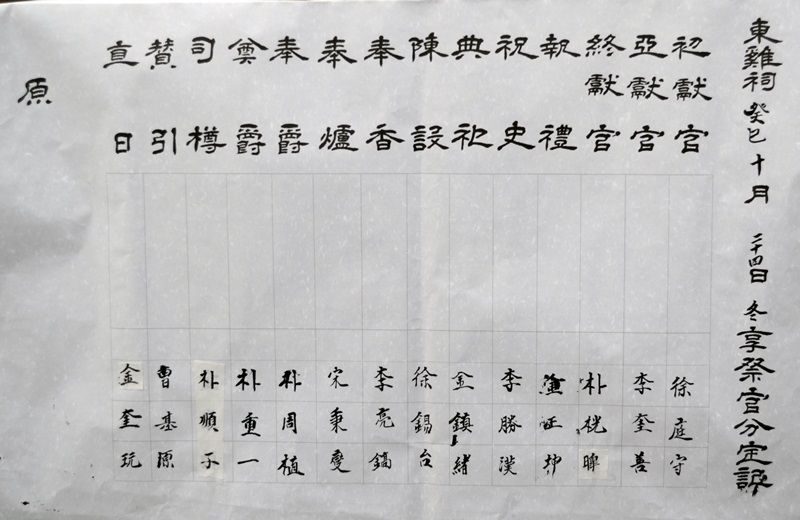 東雞祠 癸巳 十月 二十四日 冬享祭官分定記
初獻官 徐庭守
亞獻官 李奎善
終獻官 朴
執禮
祝史 李勝漢
典祀 金鎮緖
陳設 徐錫台
奉香 李亮鎬
奉爐 宋秉燮
奉爵 朴周植
奠爵 朴重一
司樽 朴順子
贊引 曹基源
直日 金奎玩
原